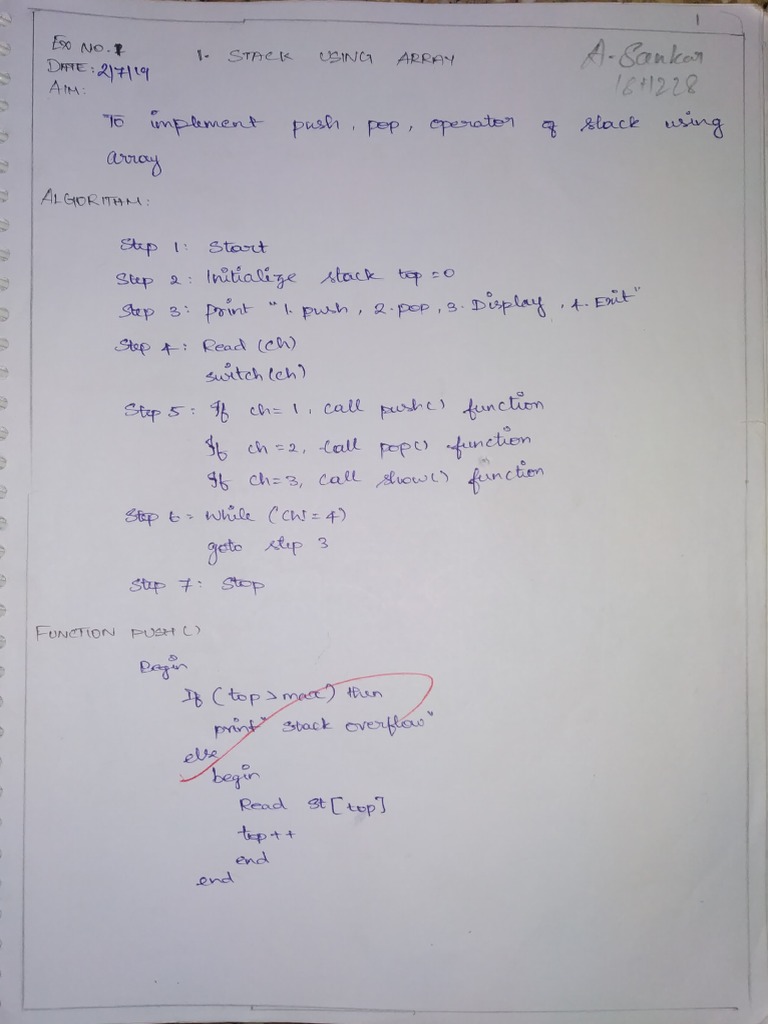 1
Ex No. 1
1. STACK USING ARRAY
A. Sankar
DATE: 2/7/19
AIM:
To implement push, pop, operator of stack using
array
ALGORITAM:
Step 1: Start
Step 2: Initialize stack top = 0
Step 3: print "1. push, 2. pop, 3. Display, 4. Exit"
Step 4: Read (ch)
switch (ch)
Step 5: If ch = 1, call push() function
If ch = 2, call pop() function
If ch = 3, call show() function
Step 6 = while (ch! = 4)
goto step 3
Step 7: Stop
FUNCTION PUSH ()
Begin
If (top > max) then
print "stack overflow"
else
begin
Read st [top]
top++
end
end